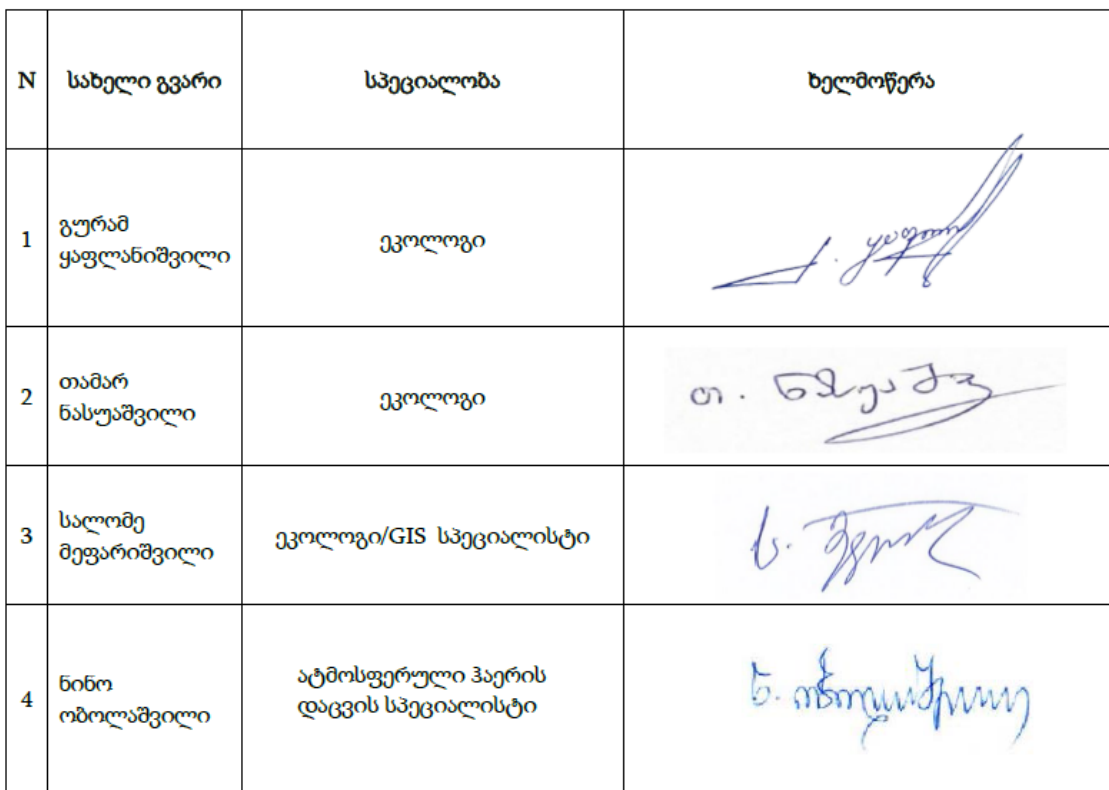 N სახელი გვარი სპეციალობა ხელმოწერა
1 გურამ
ყაფლანიშვილი ეკოლოგი
2 თამარ
ნასუაშვილი ეკოლოგი
თ.
3 სალომე
მეფარიშვილი ეკოლოგი/GIS სპეციალისტი
ს.
4 ნინო
ობოლაშვილი ატმოსფერული ჰაერის
დაცვის სპეციალისტი
ნ. ობოლაშვილი